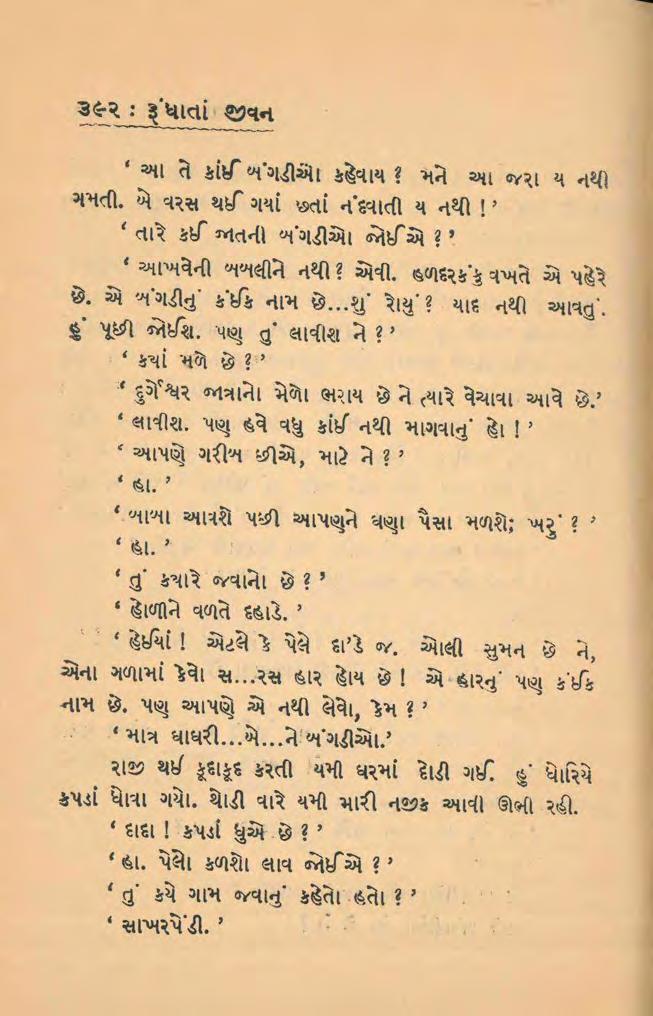 ૩૯૨ : રૂંધાતાં જીવન
‘ આ તે કાંઈ બંગડીઓ કહેવાય ? મને આ જરા ય નથી
ગમતી. બે વરસ થઈ ગયાં છતાં નંદવાતી ય નથી !’
‘ તારે કઈ જાતની બંગડીઓ જોઈએ ?’
‘ આખવેની બબલીને નથી ? એવી. હળદરકંકુ વખતે એ પહેરે
છે. એ બંગડીનું કંઈક નામ છે...શું રોયું ? યાદ નથી આવતું.
હું પૂછી જોઈશ. પણ તું લાવીશ ને ?’
‘ ક્યાં મળે છે ?’
‘ દુર્ગેશ્વર જાત્રાનો મેળો ભરાય છે ને ત્યારે વેચાવા આવે છે.’
‘ લાવીશ. પણ હવે વધુ કાંઈ નથી માગવાનું હો ! ’
‘ આપણે ગરીબ છીએ, માટે ને ? ’
‘ હા. ’
‘ બાબા આવશે પછી આપણને ઘણા પૈસા મળશે; ખરું ? ’
‘ હા. ’
‘ તું ક્યારે જવાનો છે ? ’
‘ હોળીને વળતે દહાડે. ’
‘ હેઈયાં ! એટલે કે પેલે દા’ડે જ. ઓલી સુમન છે ને,
એના ગળામાં કેવો સ...રસ હાર હોય છે ! એ હારનું પણ કંઈક
નામ છે. પણ આપણે એ નથી લેવો, કેમ ? ’
‘ માત્ર ઘાઘરી...બે...ને બંગડીઓ.’
રાજી થઈ કૂદાકૂદ કરતી યમી ઘરમાં દોડી ગઈ. હું ધોરિયે
કપડાં ધોવા ગયો. થોડી વારે યમી મારી નજીક આવી ઊભી રહી.
‘ દાદા ! કપડાં ધુએ છે ? ’
‘ હા. પેલો કળશો લાવ જોઈએ ? ’
‘ તું કયે ગામ જવાનું કહેતો હતો ? ’
‘ સાખરપેંડી. ’